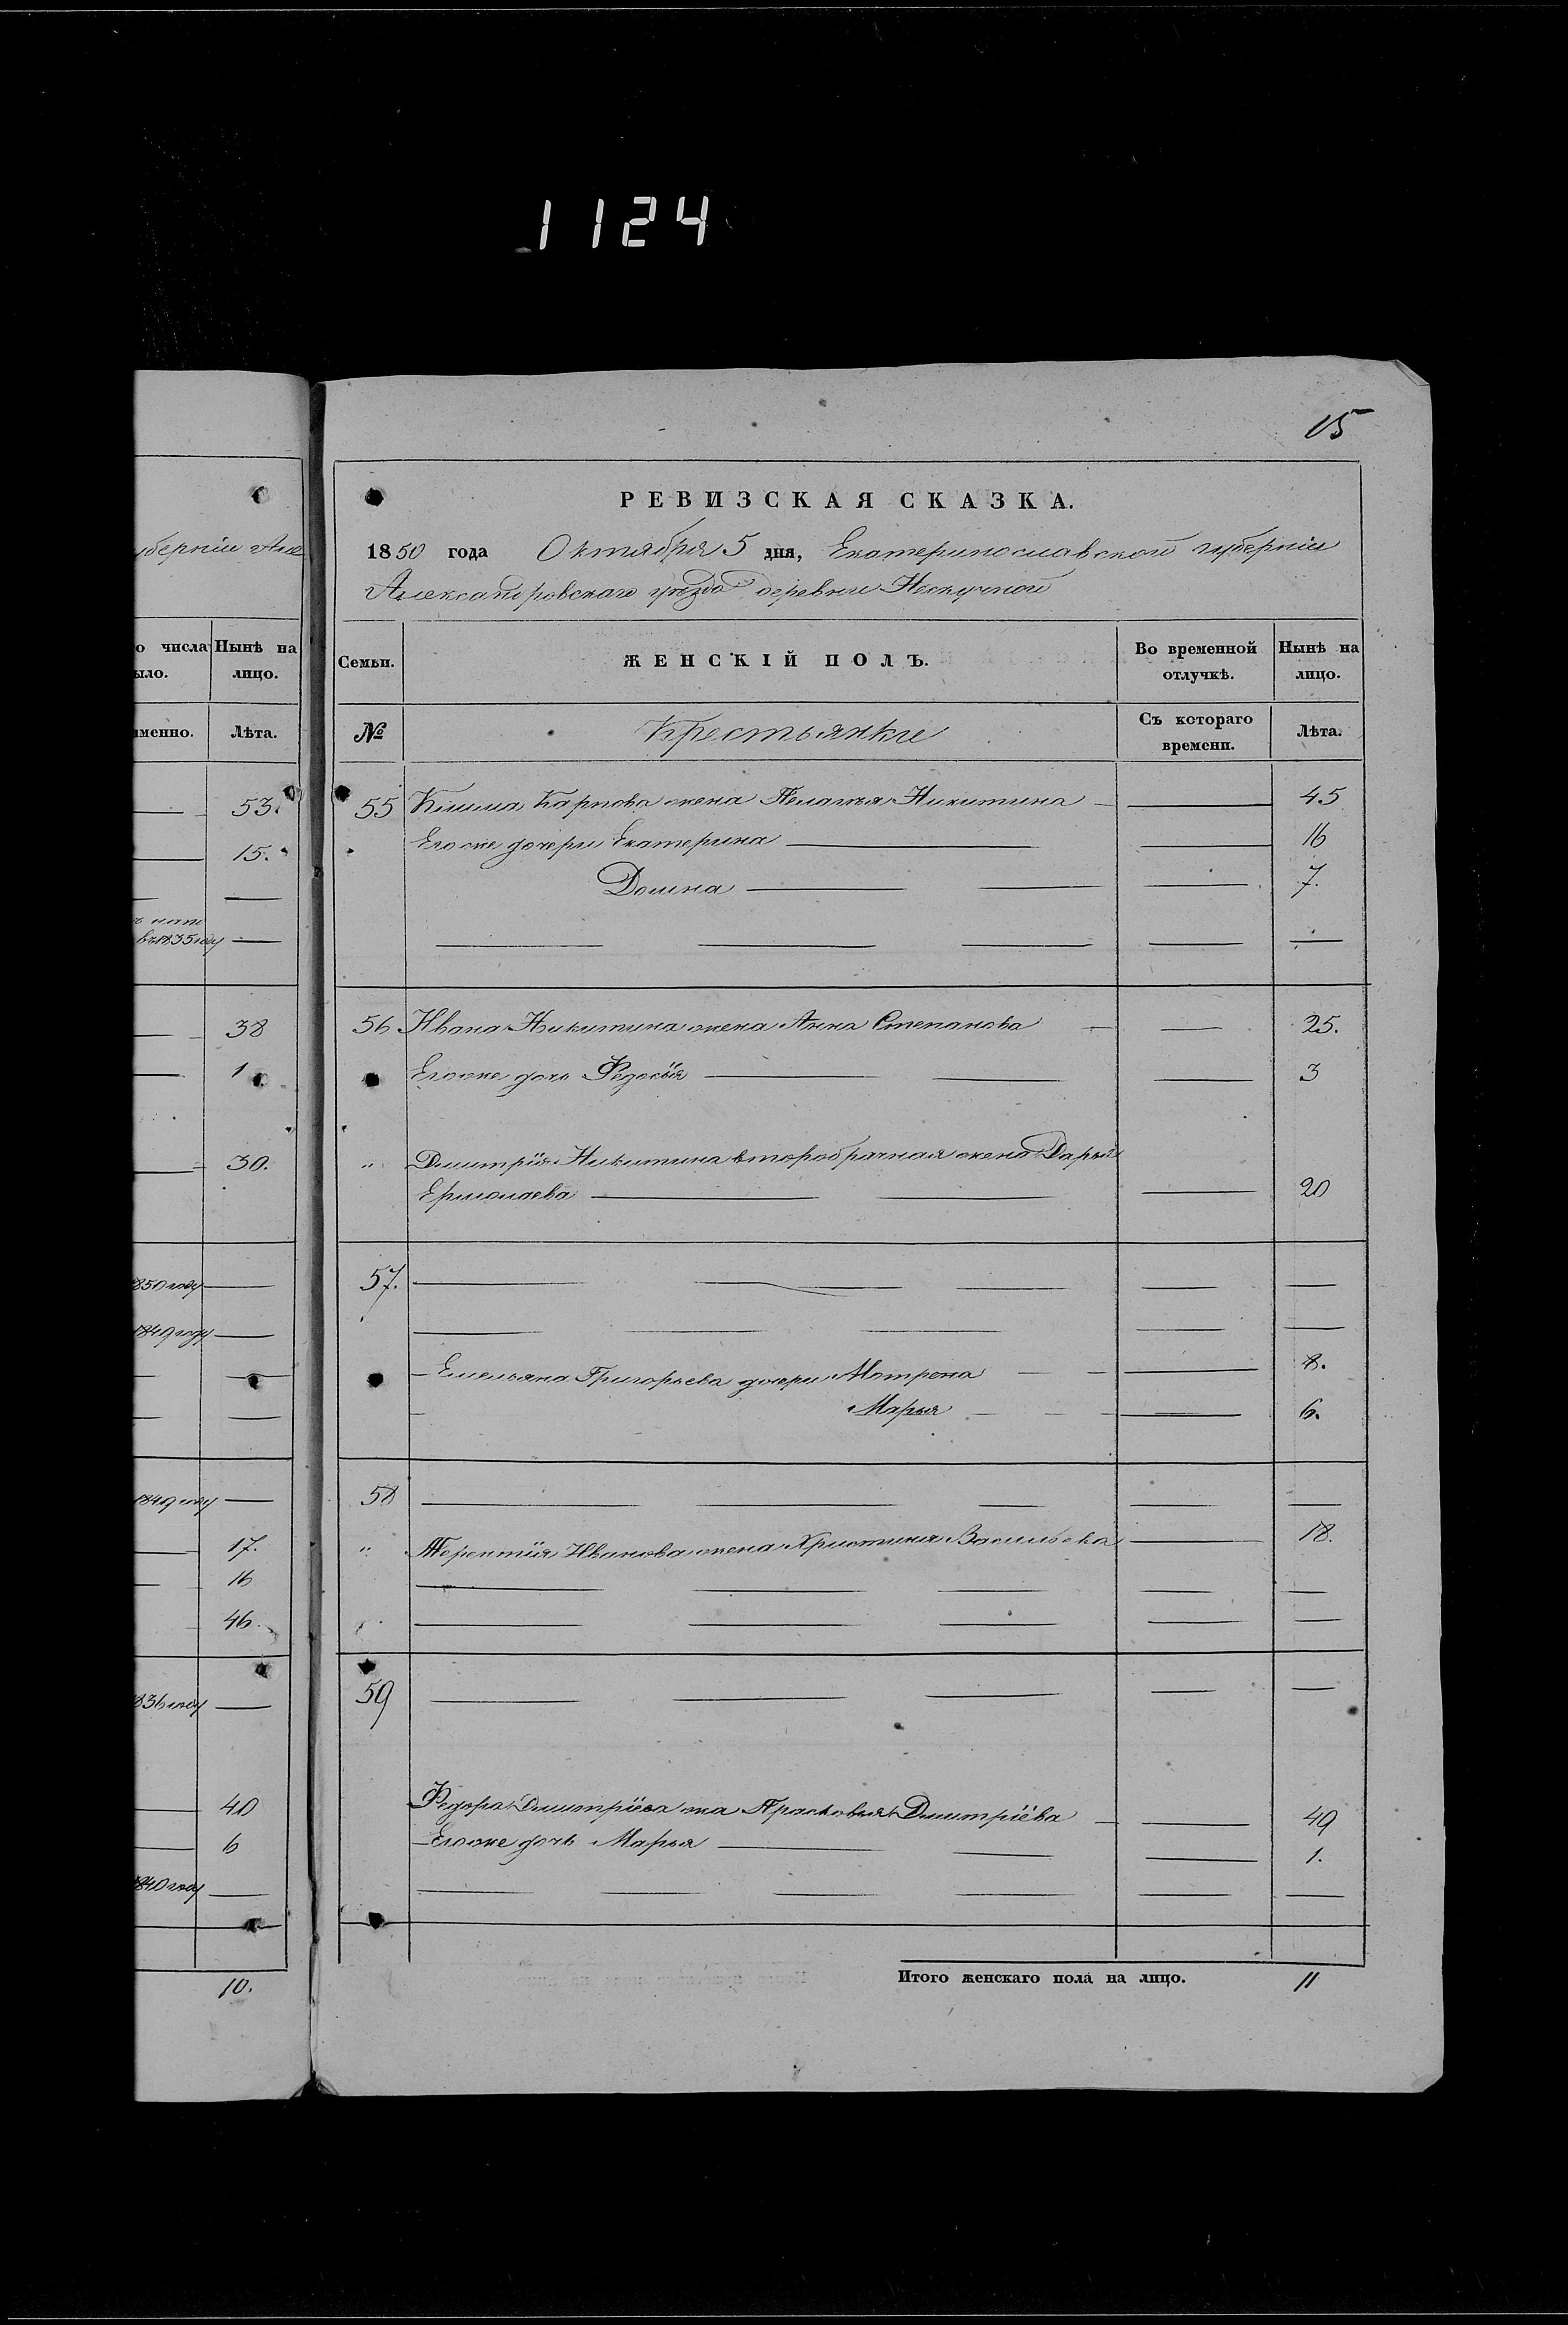 1124
15
уберніи Але
о числа Нынѣ на
ыло. лицо.
именно. Лѣта.
53.
15.
въ 1835 году
38
1
30.
1850 году
1849 году
1849 году
17.
16
46.
1836 году
40
6
1840 году
10.
РЕВИЗСКАЯ СКАЗКА.
1850 года Октября 5 дня, Екатеринославской губерніи
Александровскаго уѣзда деревни Нескучной
Семьи. ЖЕНСКІЙ ПОЛЪ. Во временной отлучкѣ. Нынѣ на лицо.
№ Крестьянки Съ котораго времени. Лѣта.
55 Клима Карпова жена Пелагѣя Никитина 45
Его же дочери Екатерина 16
Домна 7.
56 Ивана Никитина жена Анна Степанова 25.
Его же дочь Федосія 3
" Дмитрія Никитина второбрачная жена Дарья
Ермолаева 20
57.
Емельяна Григорьева дочери Матрона 8.
Марья 6.
58
" Терентія Иванова жена Христина Васильева 18.
59
Федора Дмитріева жна Прасковья Дмитріева 49
Его же дочь Марья 1.
Итого женскаго пола на лицо. 11